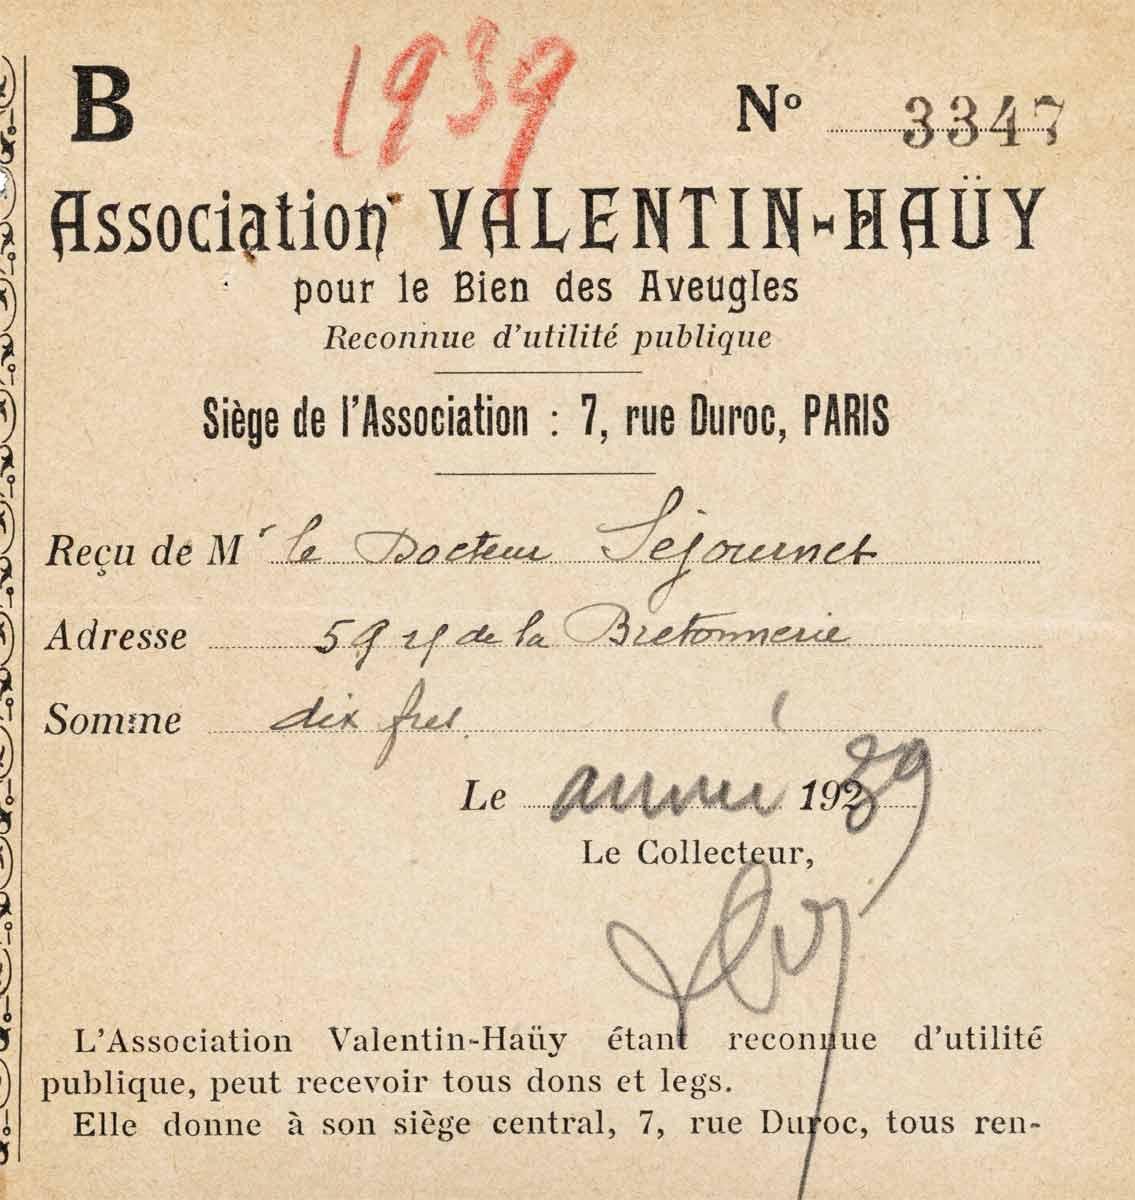 B 1939 Nº 3347
Association VALENTIN-HAÜY
pour le Bien des Aveugles
Reconnue d'utilité publique
Siège de l'Association : 7, rue Duroc, PARIS
Reçu de Mr le Docteur Séjournet
Adresse 59 r de la Bretonnerie
Somme dix frcs
Le année 1939
Le Collecteur,
L'Association Valentin-Haüy étant reconnue d'utilité
publique, peut recevoir tous dons et legs.
Elle donne à son siège central, 7, rue Duroc, tous ren-